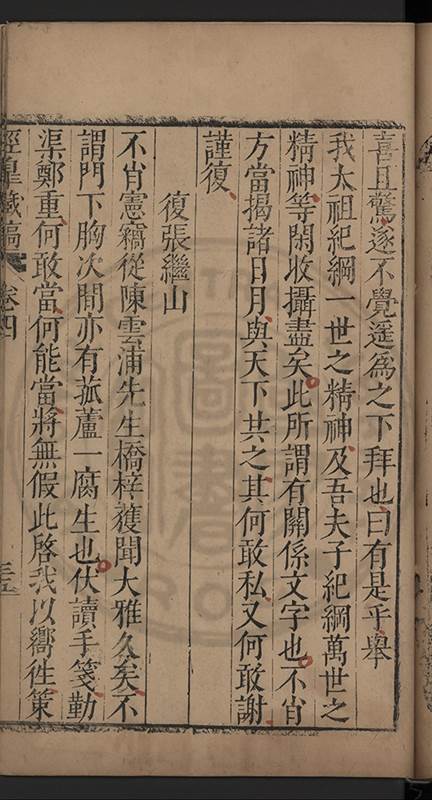 喜且驚遂不覺遥爲之下拜也曰有是乎舉
我太祖紀綱一世之精神及吾夫子紀綱萬世之
精神等閑收攝盡矣此所謂有關係文字也不肖
方當揭諸日月與天下共之其何敢私又何敢謝
謹復
復張繼山
不肖憲竊從陳雲浦先生橋梓獲聞大雅久矣不
謂門下胸次間亦有菰蘆一腐生也伏讀手箋勤
渠鄭重何敢當何能當將無假此啓我以嚮徃策
涇臯藏稿 卷四